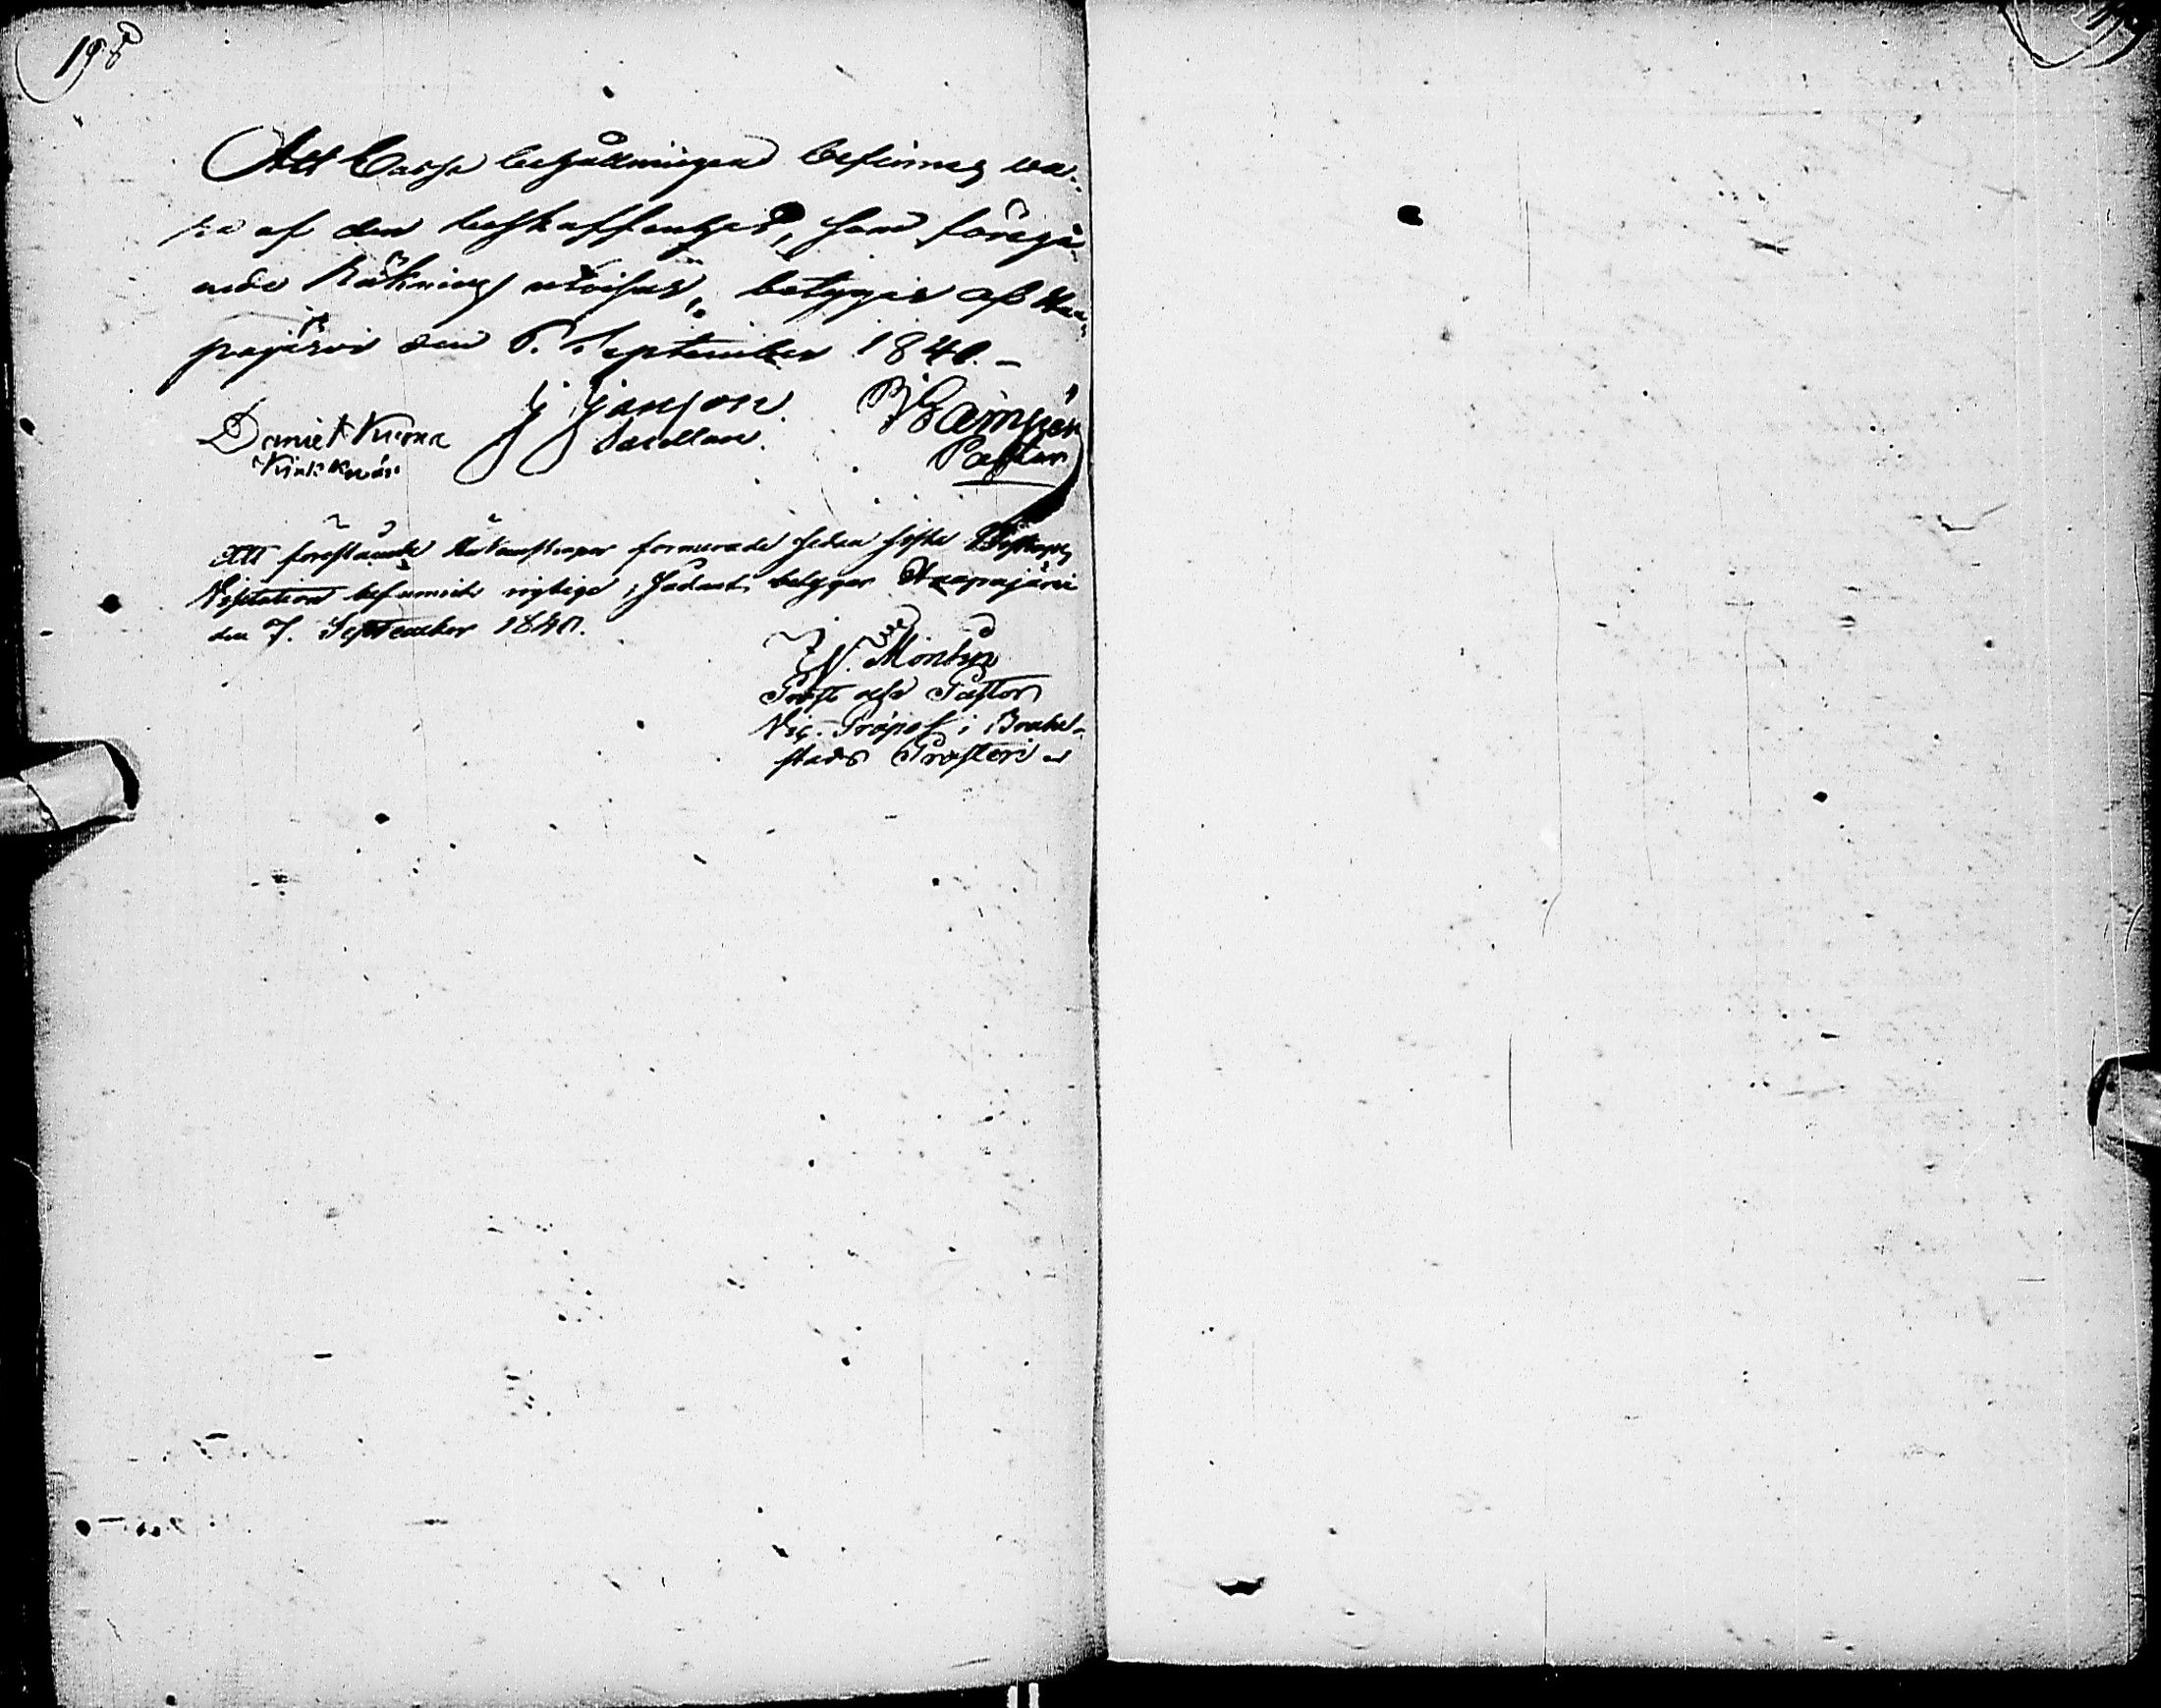 198
Att Cassa behållningen befinnes wa-
ra af den beskaffenhet, som föregå-
ende Räkning utvisar, betygas af Haa-
pajärvi den 6. September 1840.-
Daniel Kuona J Janson
Kirkkowär Sacellan. Pastor
Att förestående Räkenskaper formerade sedan sista Biskops
Visitation befunnits rigtige; sådant betygar Haapajärvi
den 7. September 1840.
W. Montin
Prost och Pastor
Vic. Præpos. i Brahe-
stads Prosteri